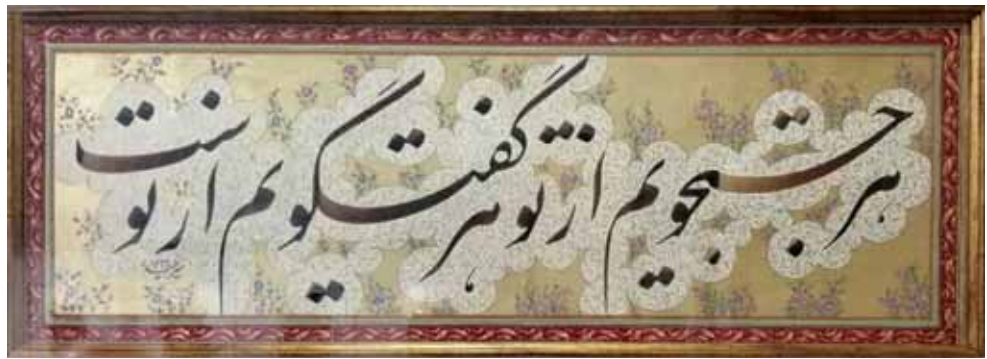 هر جستجویم از تو هر گفتگویم از تو است